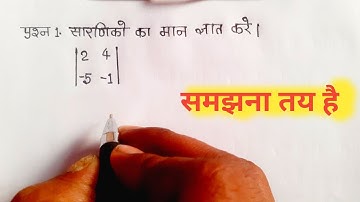 प्रश्न 1. सारणिको का मान ज्ञात करे।
|2 4|
|-5 -1|
समझना तय है